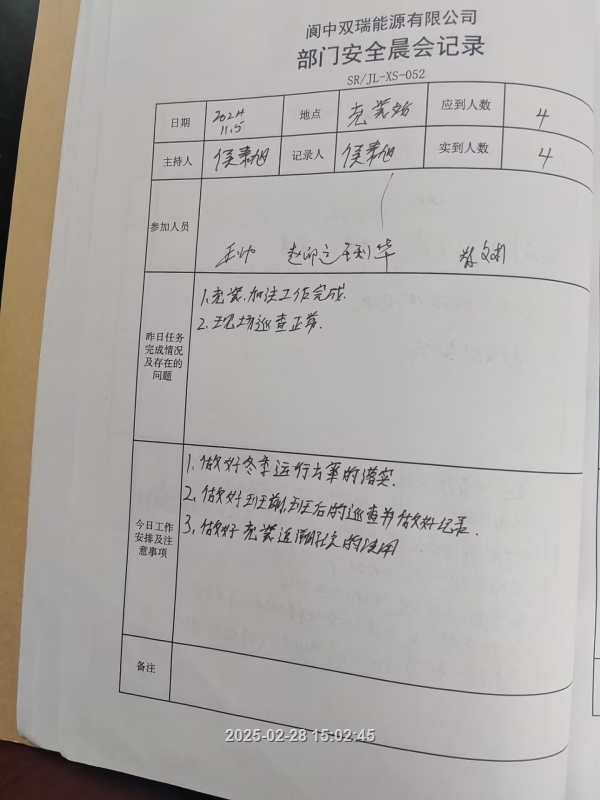 阆中双瑞能源有限公司
部门安全晨会记录
SR/JL-XS-052
日期 2024 11.5 地点 充装站 应到人数 4
主持人 侯素旭 记录人 侯素旭 实到人数 4
参加人员
王帅
昨日任务完成情况及存在的问题
1.充装.加注工作完成.
2.现场巡查正常.
今日工作安排及注意事项
1.做好冬季运行方案的落实.
2.做好班前班后的巡查并做好记录.
3.做好充装 的使用
备注
2025-02-28 15:02:45